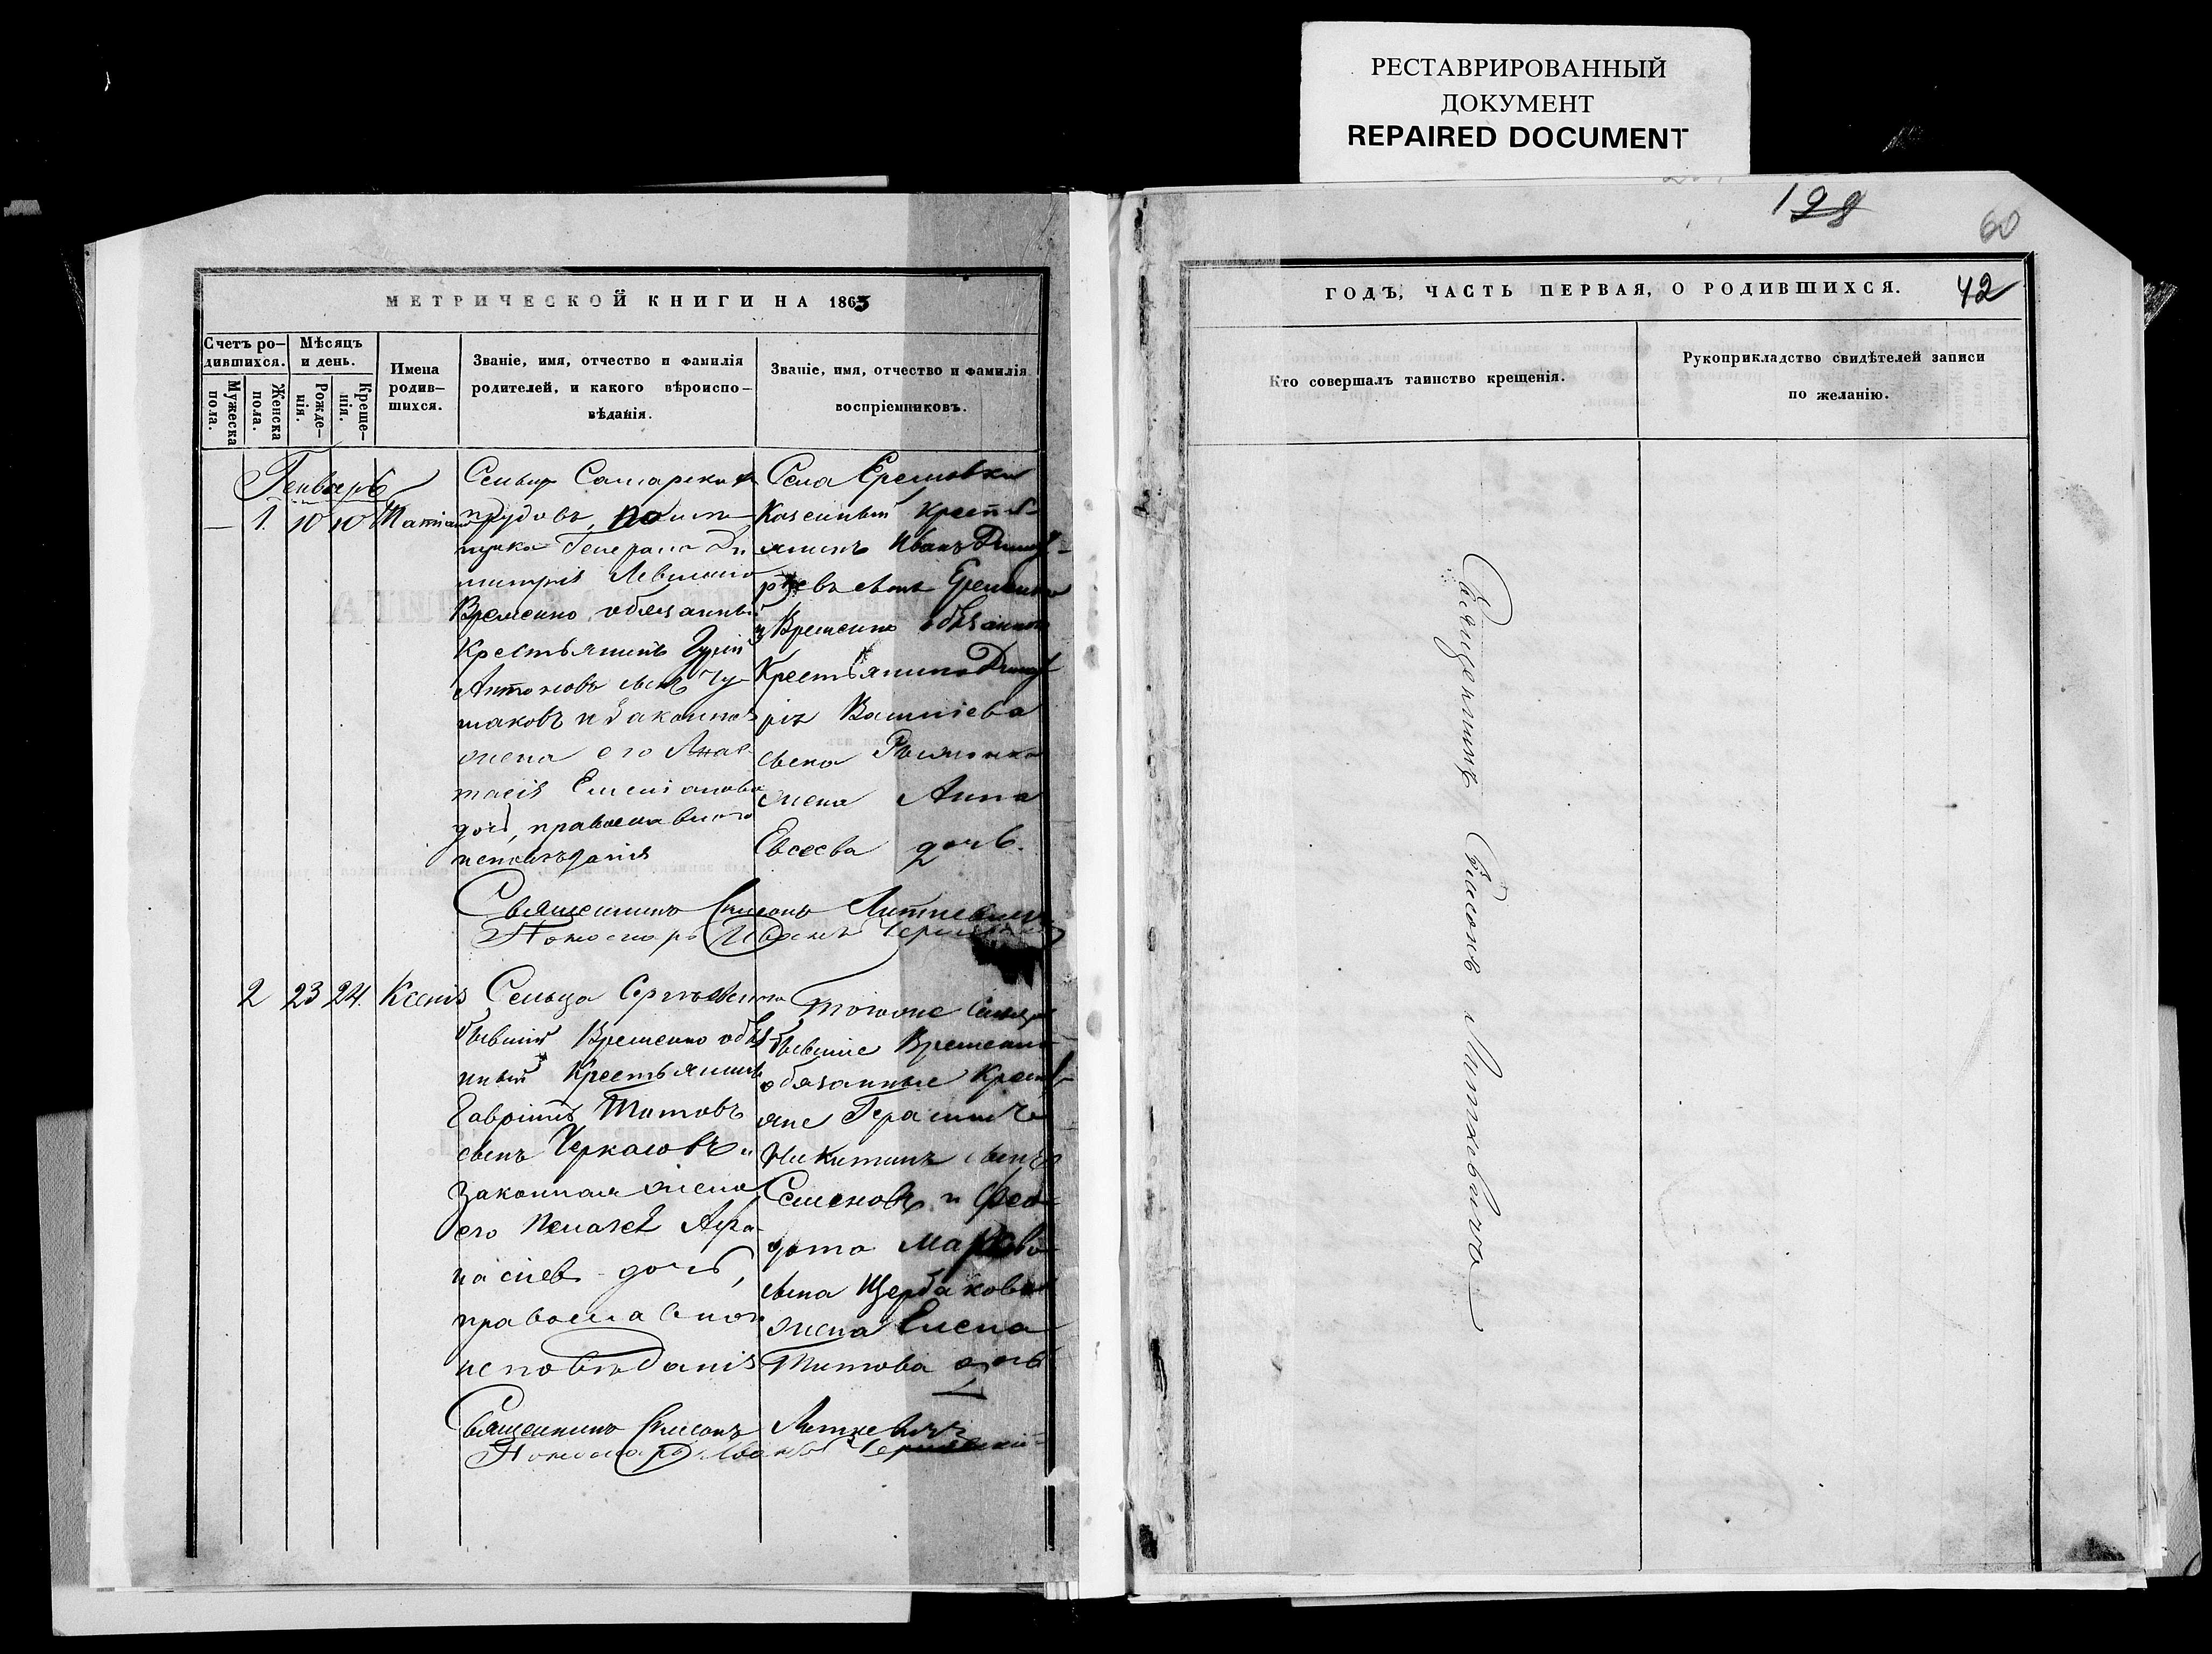 РЕСТАВРИРОВАННЫЙ
ДОКУМЕНТ
REPAIRED DOCUMENT
МЕТРИЧЕСКОЙ КНИГИ НА 1863
Счетъ ро-
дившихся.
Мужеска
пола.
Женска
пола.
Мѣсяцъ
и день.
Рожде-
нія.
Креще-
нія.
Имена
родив-
шихся.
Званіе, имя, отчество и фамилія
родителей, и какого вѣроиспо-
вѣданія.
Званіе, имя, отчество и фамилія
воспріемниковъ.
Генварь
— 1. 10 10
прудовъ,
Генерала Ди
митрія
Временно обязанный
Крестьянинъ Гурій
Антоновъ сынъ
и законная
жена его Анас-
тасія Емеліанова
дочь, православнаго
исповѣданія
Села
Казенный Крестья-
янинъ Иванъ Димит-
ріевъ сынъ
и Временно обязаннаго
Крестьянина Димит
рія
сына
жена Анна
Евсеева дочь.
Священникъ Симеонъ Литкевичъ
Пономарь Иванъ
2 23 24. Ксенія
Сельца
бывшій Временно обяз
нный Крестьянинъ
Гавріилъ Титовъ
сынъ Черкасовъ и
законная жена
его Пелагея Афа-
насіев дочь,
православнаго
исповѣданія
тогоже Сельца
бывшіе Временно
обязанные Кресть-
яне Герасимъ
Никитинъ сынъ
Семеновъ и Фео-
дота
сына Щербакова
жена Елена
Титова дочь
Священникъ Симеонъ Литкевичъ
Пономарь Иванъ
128
60
ГОДЪ, ЧАСТЬ ПЕРВАЯ, О РОДИВШИХСЯ.
42
Кто совершалъ таинство крещенія.
Рукоприкладство свидѣтелей записи
по желанію.
Священникъ Симеонъ Литкевичъ